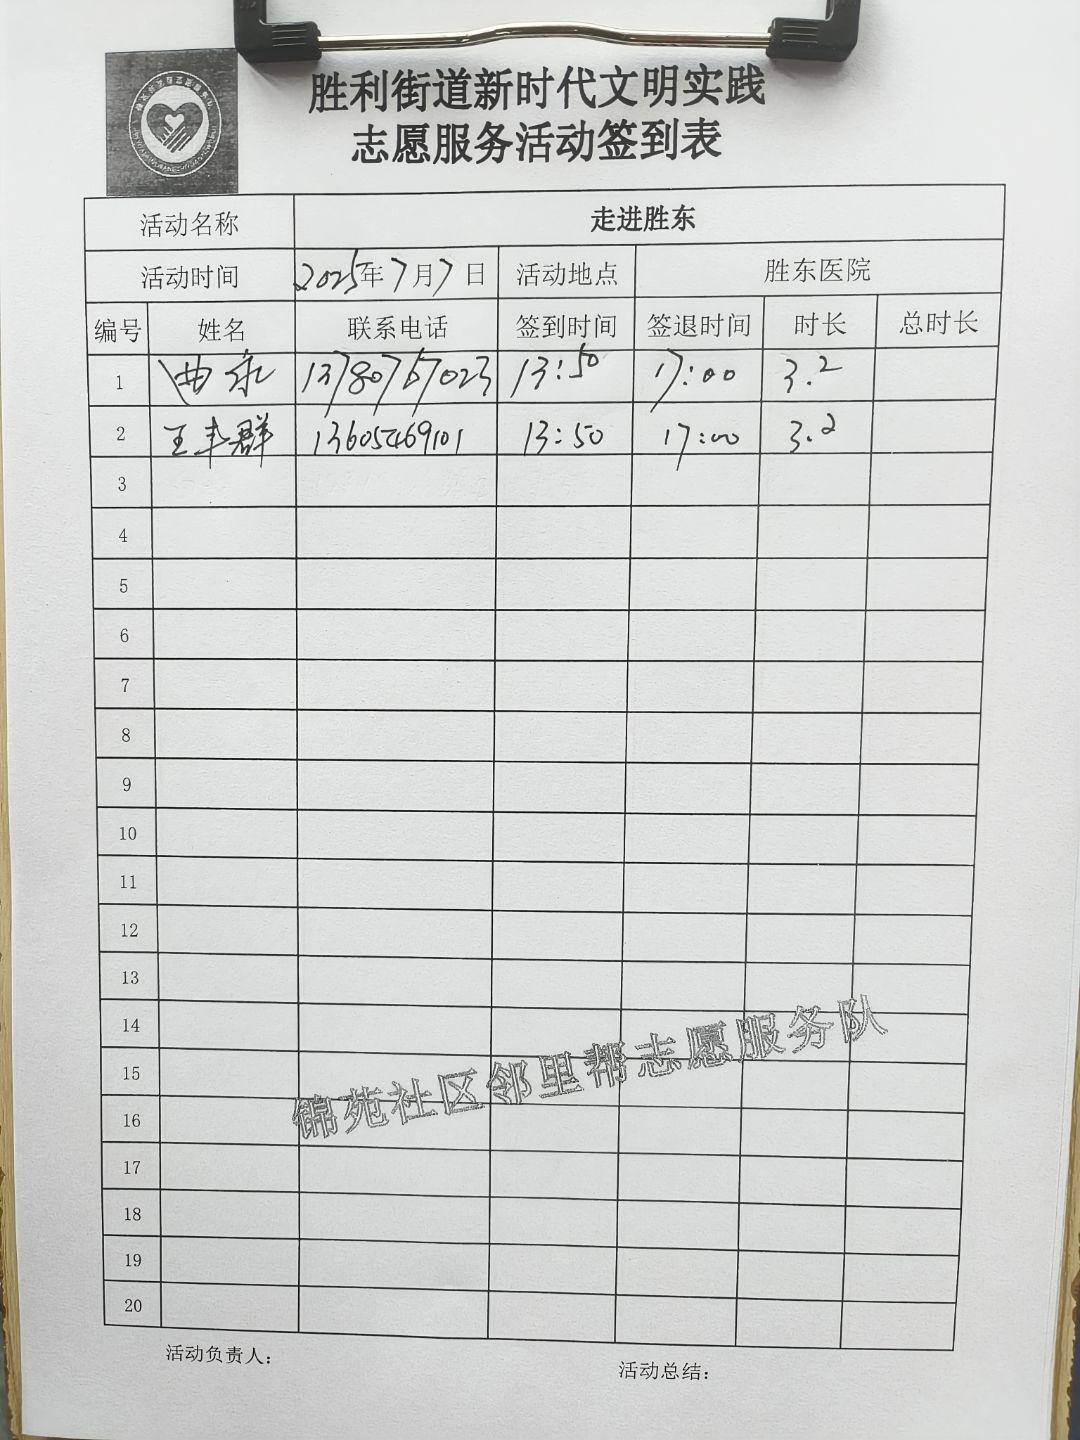 胜利街道新时代文明实践
志愿服务活动签到表
活动名称 走进胜东
活动时间 2025年7月7日 活动地点 胜东医院
编号 姓名 联系电话 签到时间 签退时间 时长 总时长
1 曲永 13780767023 13:50 17:00 3.2
2 王丰群 13605469101 13:50 17:00 3.2
3
4
5
6
7
8
9
10
11
12
13
14
15
16
17
18
19
20
锦苑社区邻里帮志愿服务队
活动负责人: 活动总结: